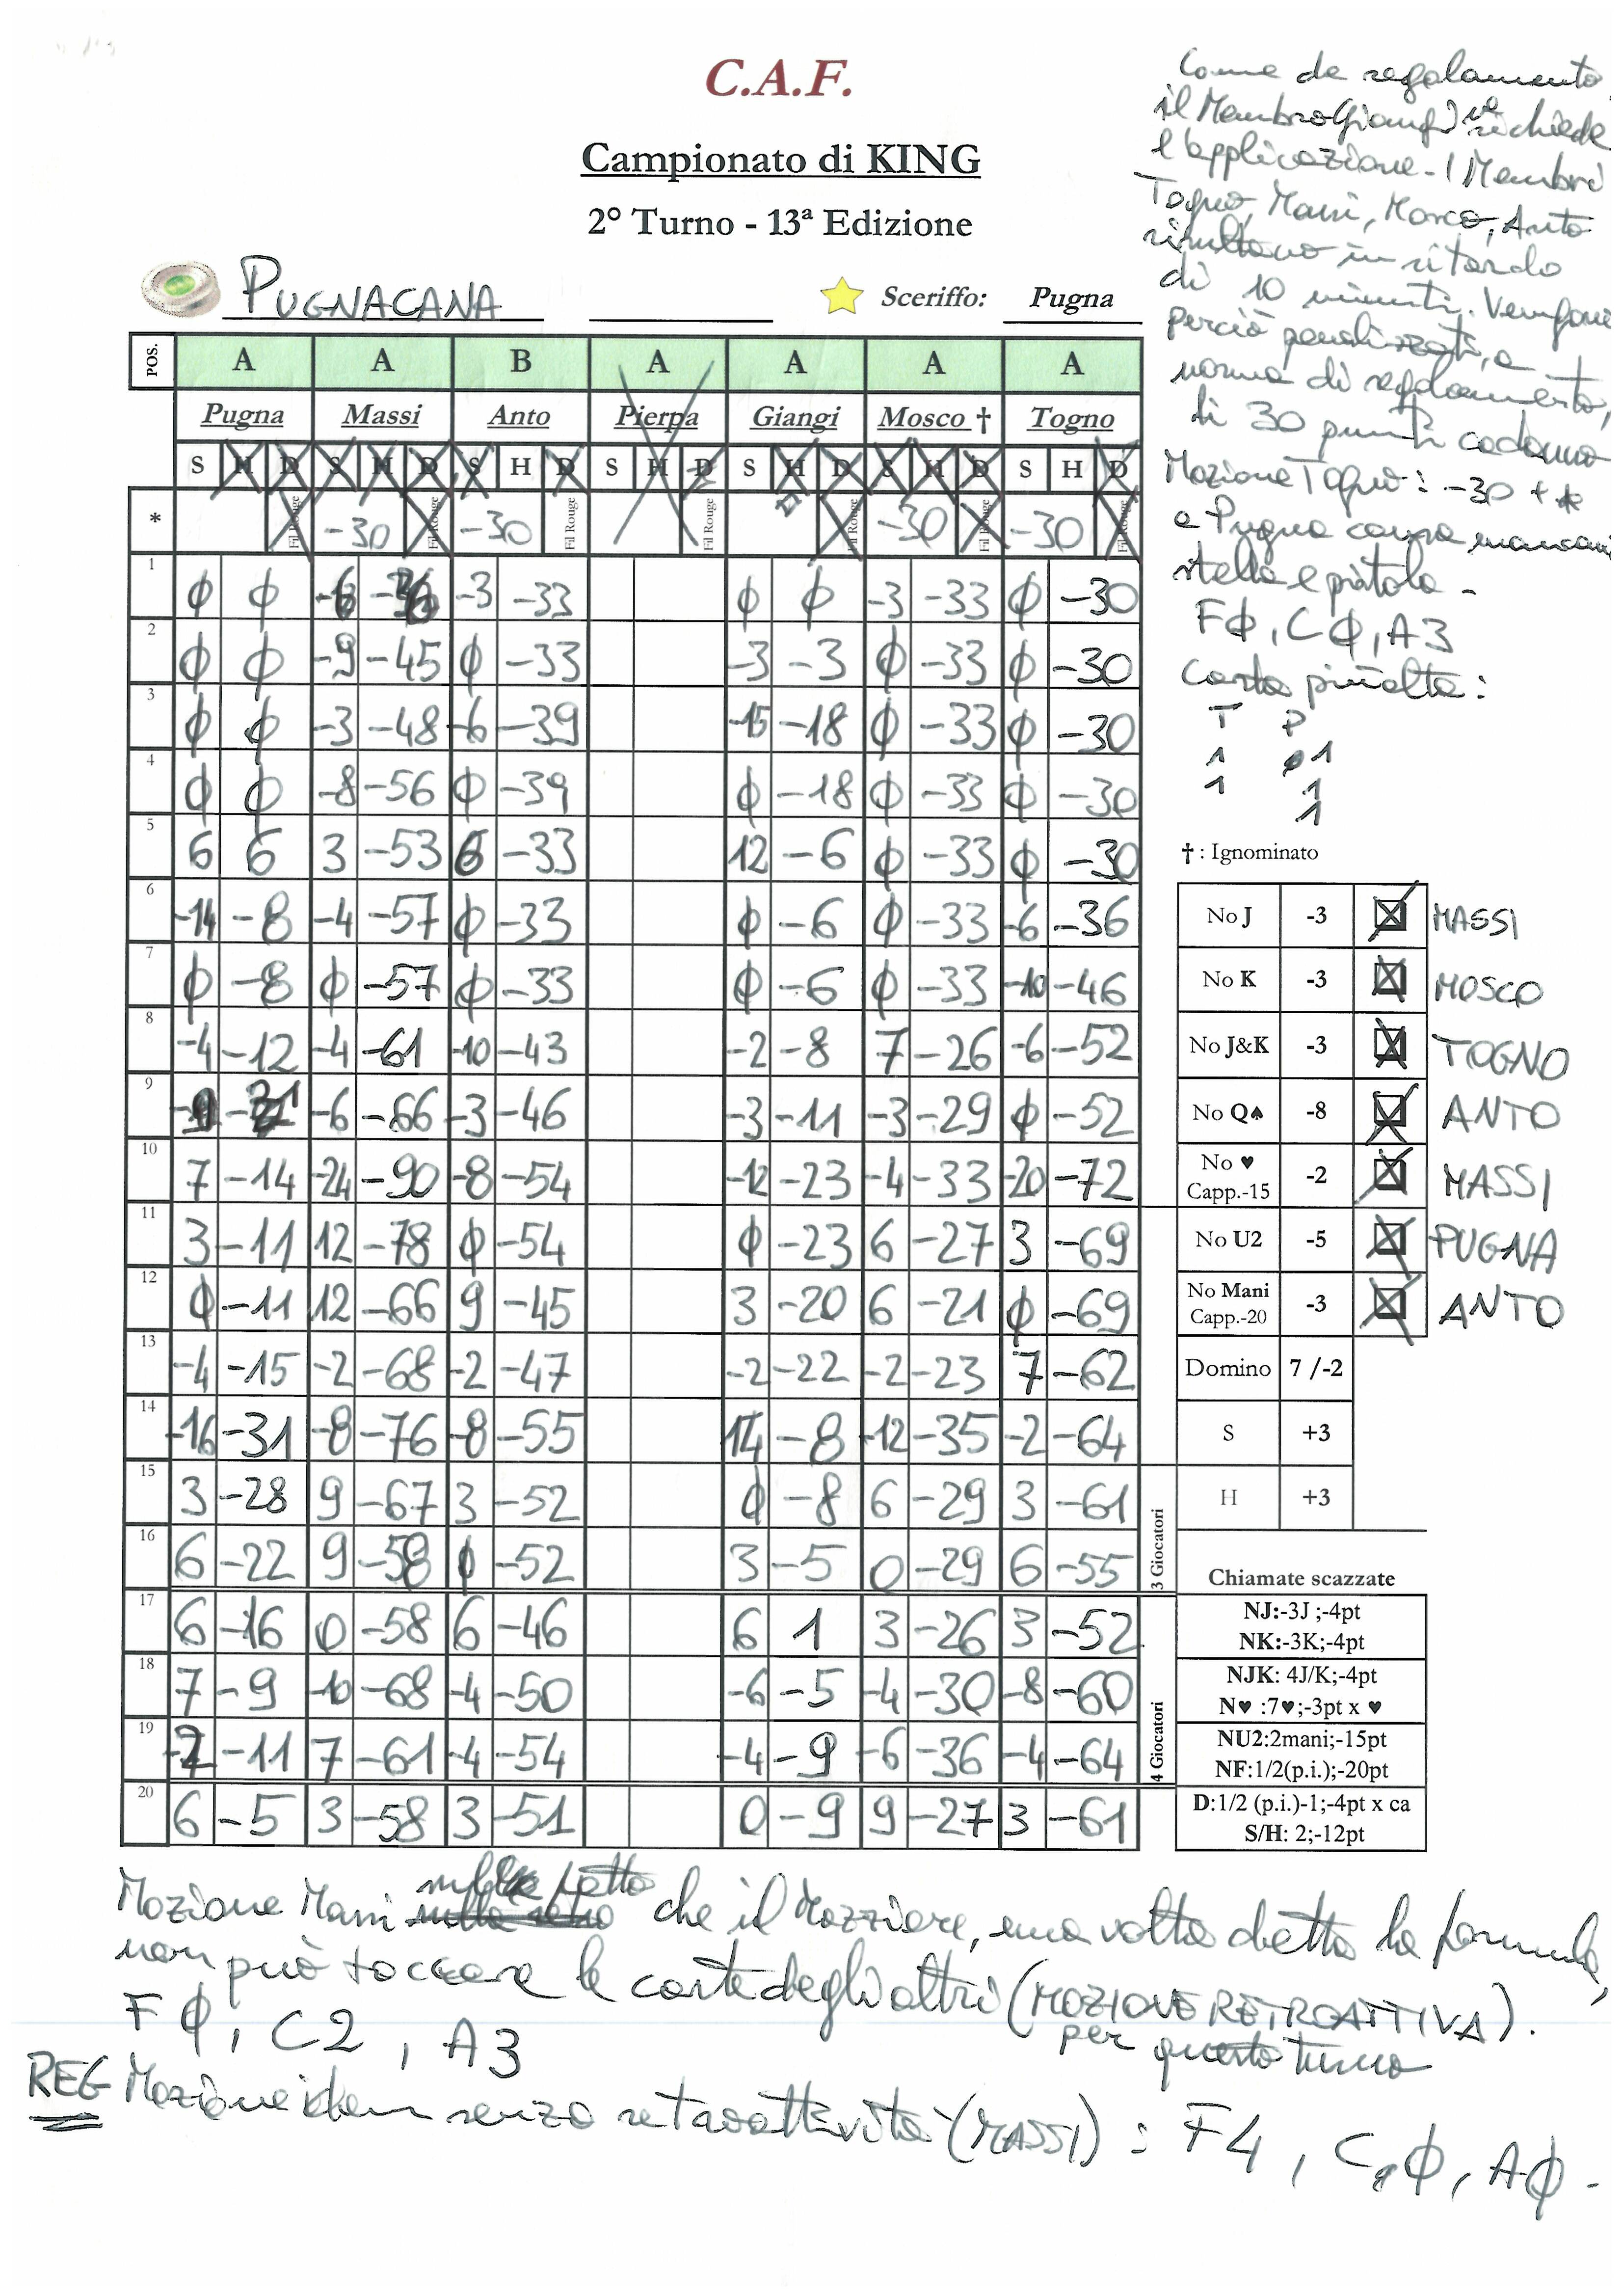 C.A.F.
Campionato di KING
2° Turno - 13ª Edizione
PUGNACANA
Sceriffo: Pugna
Come da regolamento
il Membro Giangi richiede
l'applicazione - I Membri
Togno, Massi, Mosco, Anto
risultano in ritardo
di 10 minuti. Vengono
perciò penalizzati, a
norma di regolamento,
di 30 punti cadauno
Mozione Togno: -30 + *
a Pugna causa
stella e pistola -
Fφ, Cφ, A3
Carta più alta:
T P
1 1
1 1
1
POS. A A B A A A A
Pugna Massi Anto Pierpa Giangi Mosco † Togno
S H D S H D S H D S H D S H D S H D S H D
* Fil Rouge -30 Fil Rouge -30 Fil Rouge Fil Rouge Fil Rouge -30 Fil Rouge -30 Fil Rouge
1 φ φ -6 -36 -3 -33 φ φ -3 -33 φ -30
2 φ φ -9 -45 φ -33 -3 -3 φ -33 φ -30
3 φ φ -3 -48 -6 -39 -15 -18 φ -33 φ -30
4 φ φ -8 -56 φ -39 φ -18 φ -33 φ -30
5 6 6 3 -53 6 -33 12 -6 φ -33 φ -30
6 -14 -8 -4 -57 φ -33 φ -6 φ -33 -6 -36
7 φ -8 φ -57 φ -33 φ -6 φ -33 -10 -46
8 -4 -12 -4 -61 -10 -43 -2 -8 7 -26 -6 -52
9 -9 -21 -6 -66 -3 -46 -3 -11 -3 -29 φ -52
10 7 -14 -24 -90 -8 -54 -12 -23 -4 -33 -20 -72
11 3 -11 12 -78 φ -54 φ -23 6 -27 3 -69
12 φ -11 12 -66 9 -45 3 -20 6 -21 φ -69
13 -4 -15 -2 -68 -2 -47 -2 -22 -2 -23 7 -62
14 -16 -31 -8 -76 -8 -55 14 -8 -12 -35 -2 -64
15 3 -28 9 -67 3 -52 φ -8 6 -29 3 -61
16 6 -22 9 -58 φ -52 3 -5 0 -29 6 -55
17 6 -16 0 -58 6 -46 6 1 3 -26 3 -52
18 7 -9 -10 -68 -4 -50 -6 -5 -4 -30 -8 -60
19 -2 -11 7 -61 -4 -54 -4 -9 -6 -36 -4 -64
20 6 -5 3 -58 3 -51 0 -9 9 -27 3 -61
3 Giocatori
4 Giocatori
† : Ignominato
No J -3 MASSI
No K -3 MOSCO
No J&K -3 TOGNO
No Q♠ -8 ANTO
No ♥ Capp.-15 -2 MASSI
No U2 -5 PUGNA
No Mani Capp.-20 -3 ANTO
Domino 7 /-2
S +3
H +3
Chiamate scazzate
NJ:-3J ;-4pt
NK:-3K;-4pt
NJK: 4J/K;-4pt
N♥ :7♥;-3pt x ♥
NU2:2mani;-15pt
NF:1/2(p.i.);-20pt
D:1/2 (p.i.)-1;-4pt x ca
S/H: 2;-12pt
Mozione Massi sul fatto che il Mazziere, una volta detta la formula,
non può toccare le carte degli altri (MOZIONE RETROATTIVA).
per questo turno
Fφ, C2, A3
REG Mozione idem senza retroattività (MASSI) : F4, Cφ, Aφ.